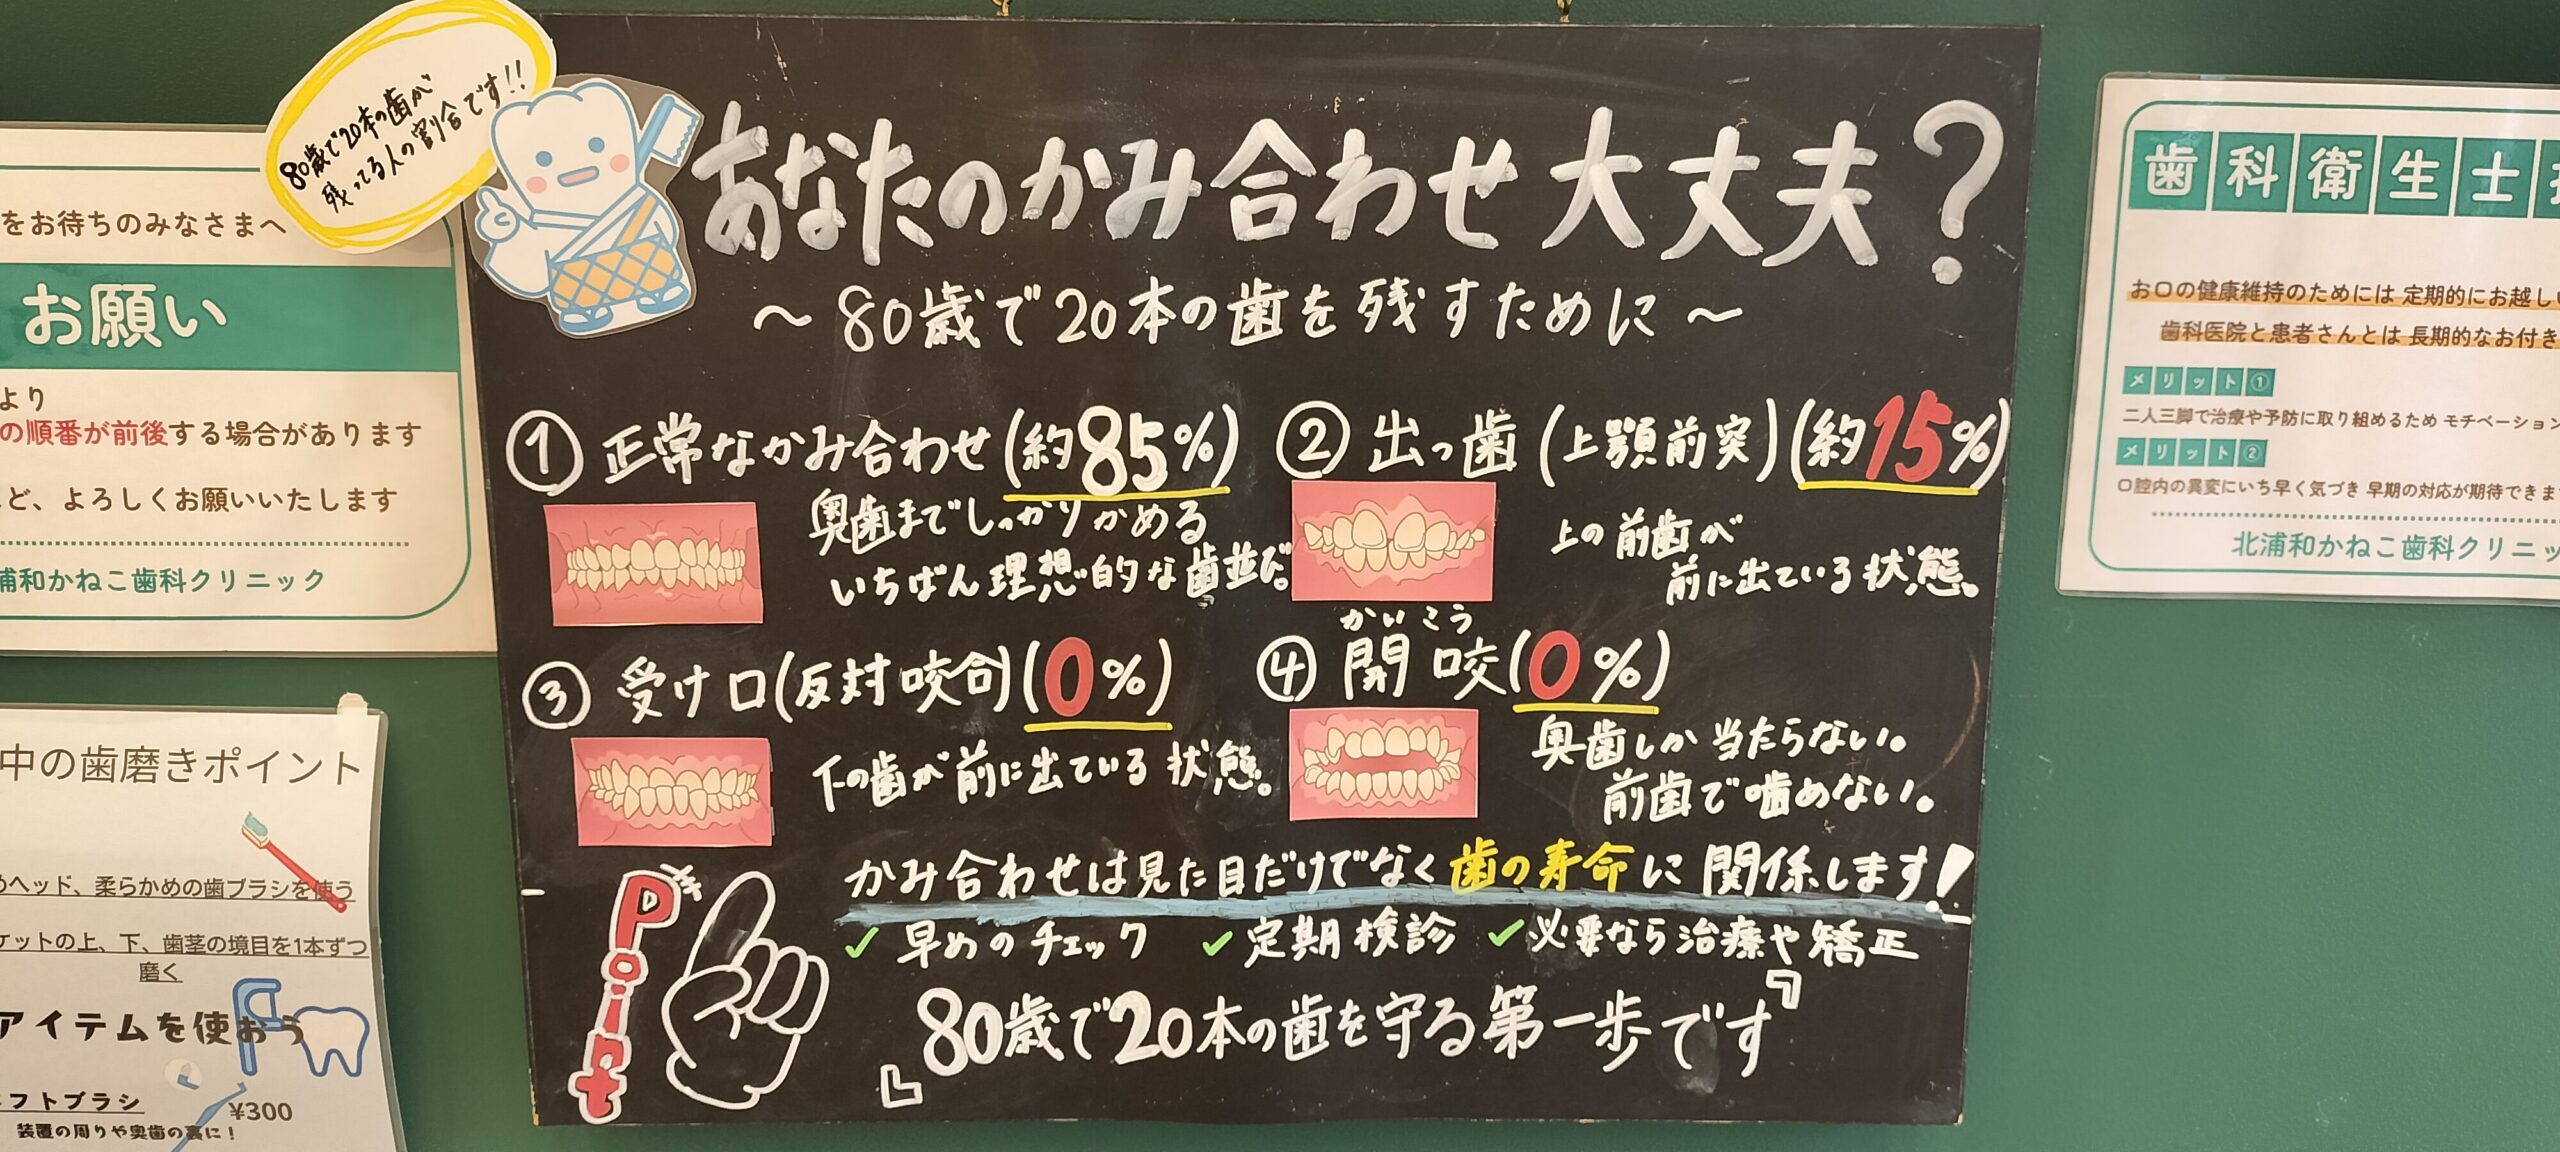 80歳で20本の歯が
残ってる人の割合です!!
あなたのかみ合わせ大丈夫?
～80歳で20本の歯を残すために～
① 正常なかみ合わせ(約85%)
奥歯までしっかりかめる
いちばん理想的な歯並び。
② 出っ歯(上顎前突)(約15%)
上の前歯が
前に出ている状態。
③ 受け口(反対咬合)(0%)
下の歯が前に出ている状態。
かいこう
④ 開咬(0%)
奥歯しか当たらない。
前歯で噛めない。
Point
かみ合わせは見た目だけでなく歯の寿命に関係します!
✓早めのチェック ✓定期検診 ✓必要なら治療や矯正
『80歳で20本の歯を守る第一歩です』
をお待ちのみなさまへ
お願い
より
の順番が前後する場合があります
ど、よろしくお願いいたします
浦和かねこ歯科クリニック
中の歯磨きポイント
めヘッド、柔らかめの歯ブラシを使う
ケットの上、下、歯茎の境目を1本ずつ
磨く
アイテムを使おう
フトブラシ
¥300
装置の周りや奥歯の裏に!
歯科衛生士
お口の健康維持のためには 定期的にお越し
歯科医院と患者さんとは 長期的なお付き
メリット①
二人三脚で治療や予防に取り組めるため モチベーション
メリット②
口腔内の異変にいち早く気づき 早期の対応が期待できま
北浦和かねこ歯科クリニッ